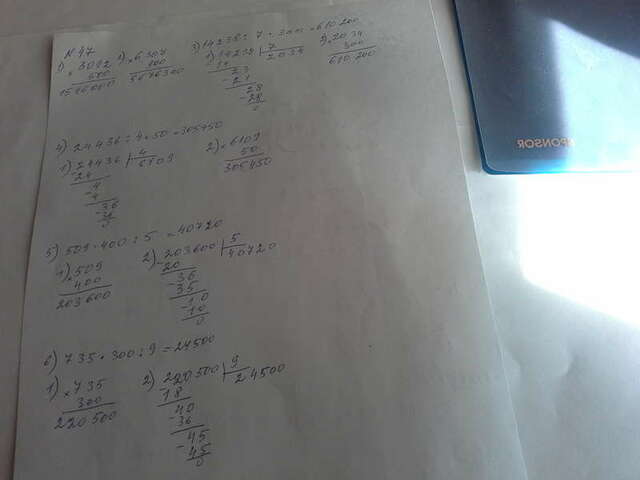 N 47
1) × 3092
500
1546000
2) × 6307
3) 14238 : 7 · 300 = 610200
1) 14238 | 7
14 2034
- 23
- 21
28
- 28
0
2) × 2034
300
610200
4) 24436 : 4 · 50 = 305450
1) 24436 | 4
24 6109
- 4
4
- 36
36
0
2) × 6109
50
305450
5) 509 · 400 : 5 = 40720
1) × 509
400
203600
2) 203600 | 5
20 40720
- 36
35
- 10
10
0
6) 735 · 300 : 9 = 24500
1) × 735
300
220500
2) 220500 | 9
18 24500
40
- 36
- 45
45
0
SPONSOR